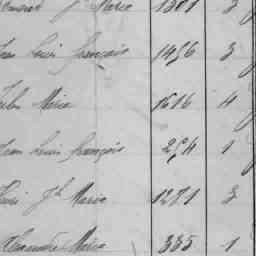 J. Marie 1301 3
Jean Louis François 1496 3
Jules Marie 1616 4
Jean Louis François 254 1
Louis Jh Marie 1271 3
Alexandre Marie 335 1